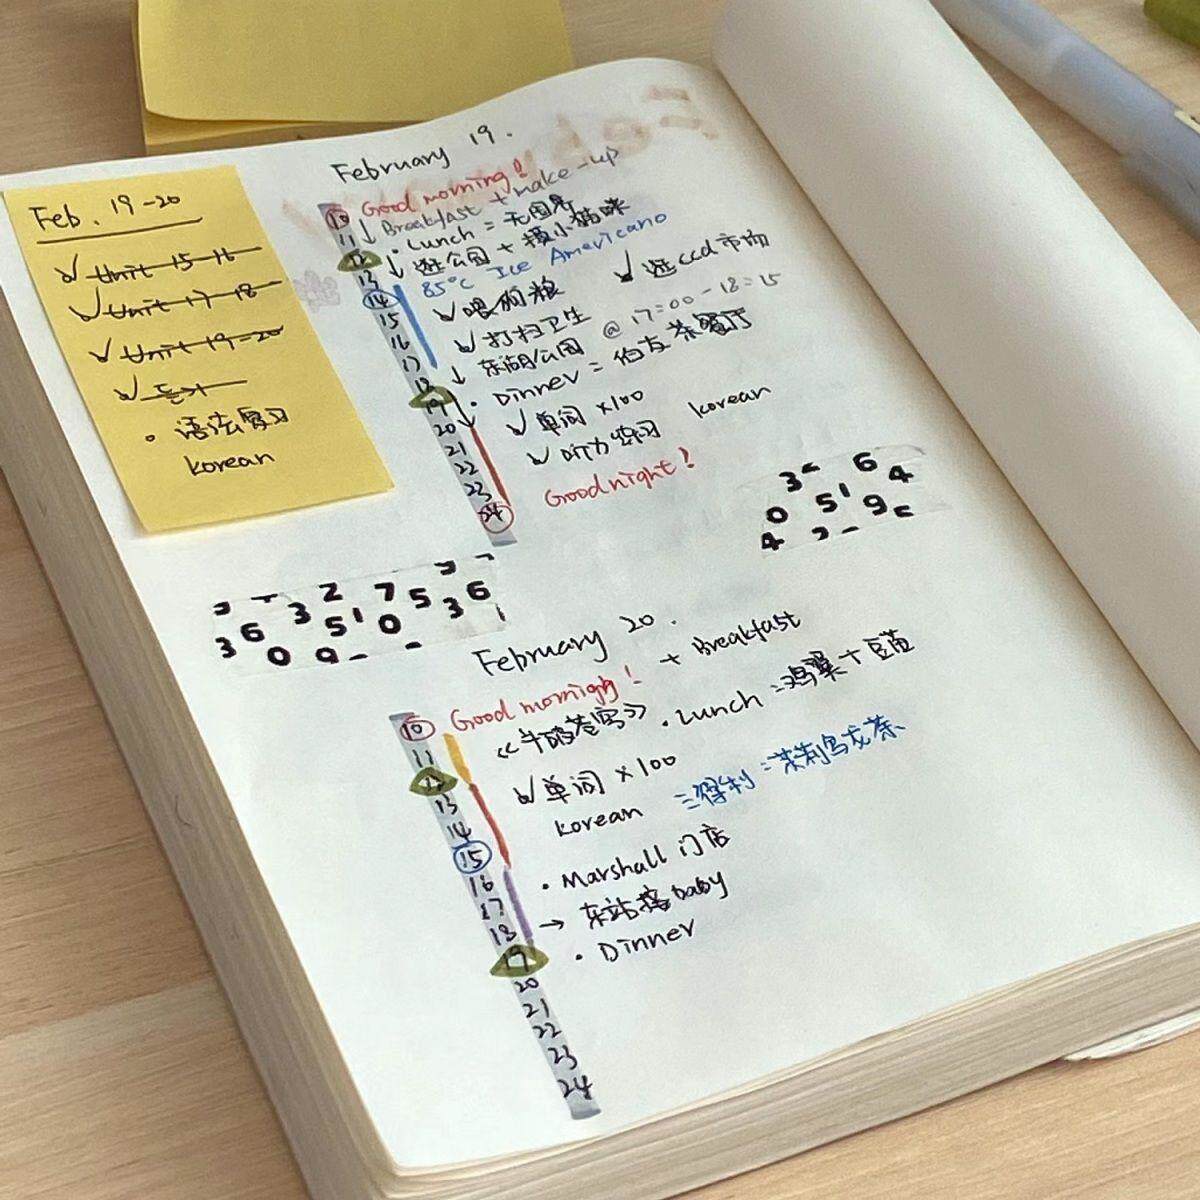 Feb. 19-20
Unit 15-16
Unit 17-18
Unit 19-20
듣기
语法复习
korean
February 19.
Good morning!
Breakfast + make-up
Lunch = 无国界
逛公园 + 撸小猫咪
85°C Ice Americano
喂狗粮
逛ccd市场
打扫卫生
东湖公园 @ 17:00-18:15
Dinner = 茶餐厅
单词 ×100
听力练习 korean
Good night!
10
11
12
13
14
15
16
17
18
19
20
21
22
23
24
3 6
0 5 1 4
4 9
2 7
3 5
3 6 5 1 0 3 6
0 9
February 20.
Good mornign! + Breakfast
Lunch = 鸡翼 + 豆苗
单词 ×100
korean
三得利 = 茉莉乌龙茶
Marshall 门店
→ 东站接baby
Dinner
10
11
12
13
14
15
16
17
18
19
20
21
22
23
24